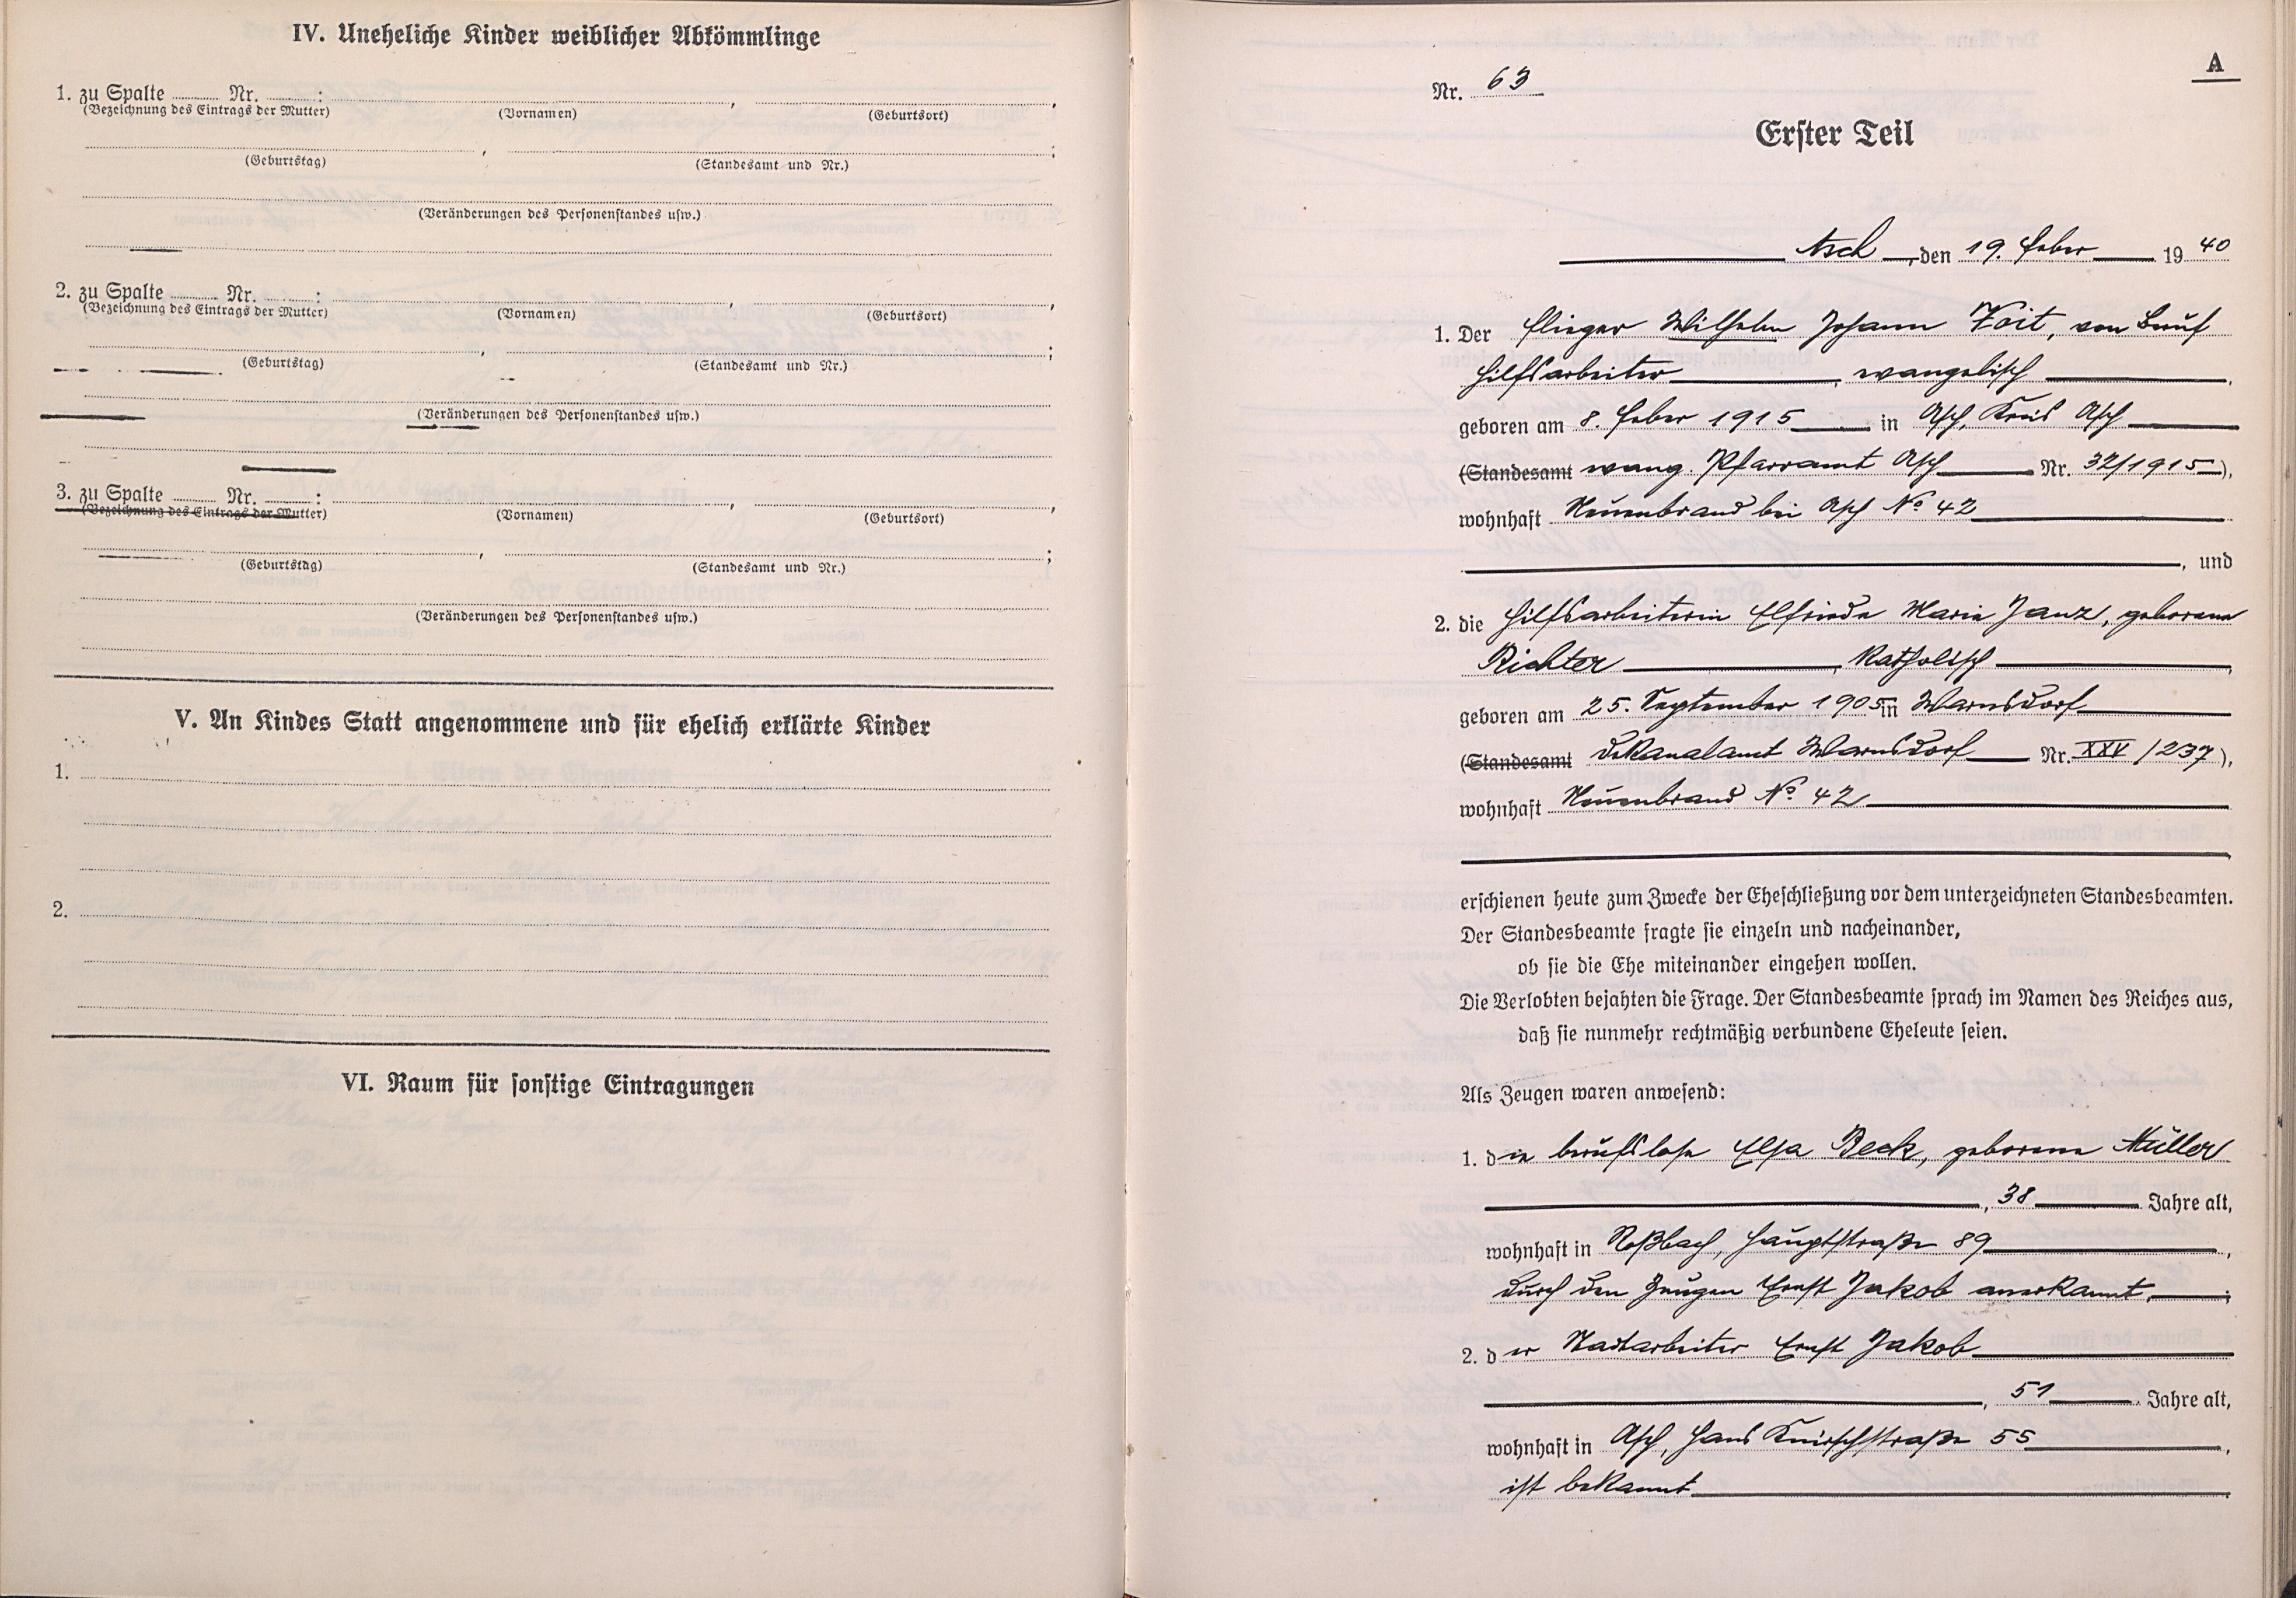 IV. Uneheliche Kinder weiblicher Abkömmlinge
1. zu Spalte ........ Nr. ........ :
(Bezeichnung des Eintrags der Mutter) (Vornamen) (Geburtsort)
(Geburtstag) (Standesamt und Nr.)
(Veränderungen des Personenstandes usw.)
2. zu Spalte ........ Nr. ........ :
(Bezeichnung des Eintrags der Mutter) (Vornamen) (Geburtsort)
(Geburtstag) (Standesamt und Nr.)
(Veränderungen des Personenstandes usw.)
3. zu Spalte ........ Nr. ........ :
(Bezeichnung des Eintrags der Mutter) (Vornamen) (Geburtsort)
(Geburtstag) (Standesamt und Nr.)
(Veränderungen des Personenstandes usw.)
V. An Kindes Statt angenommene und für ehelich erklärte Kinder
1.
2.
VI. Raum für sonstige Eintragungen
A
Nr. 63
Erster Teil
Asch, den 19. Feber 1940
1. Der Flieger Wilhelm Johann Voit, von Beruf
Hilfsarbeiter, evangelisch,
geboren am 8. Feber 1915 in Asch, Kreis Asch
(Standesamt evang. Pfarramt Asch Nr. 32/1915),
wohnhaft Neuenbrand bei Asch No 42
, und
2. die Hilfsarbeiterin Elfriede Maria Janz, geborene
Richter, katholisch,
geboren am 25. September 1905 in Warnsdorf
(Standesamt Dekanalamt Warnsdorf Nr. XXV/237),
wohnhaft Neuenbrand No 42
erschienen heute zum Zwecke der Eheschließung vor dem unterzeichneten Standesbeamten.
Der Standesbeamte fragte sie einzeln und nacheinander,
ob sie die Ehe miteinander eingehen wollen.
Die Verlobten bejahten die Frage. Der Standesbeamte sprach im Namen des Reiches aus,
daß sie nunmehr rechtmäßig verbundene Eheleute seien.
Als Zeugen waren anwesend:
1. die berufslose Elsa Beck, geborene Müller
, 38 Jahre alt,
wohnhaft in Roßbach, Hauptstraße 89,
durch den Zeugen Ernst Jakob anerkannt,;
2. der Stadtarbeiter Ernst Jakob
, 51 Jahre alt,
wohnhaft in Asch, Hans Knirschstraße 55,
ist bekannt